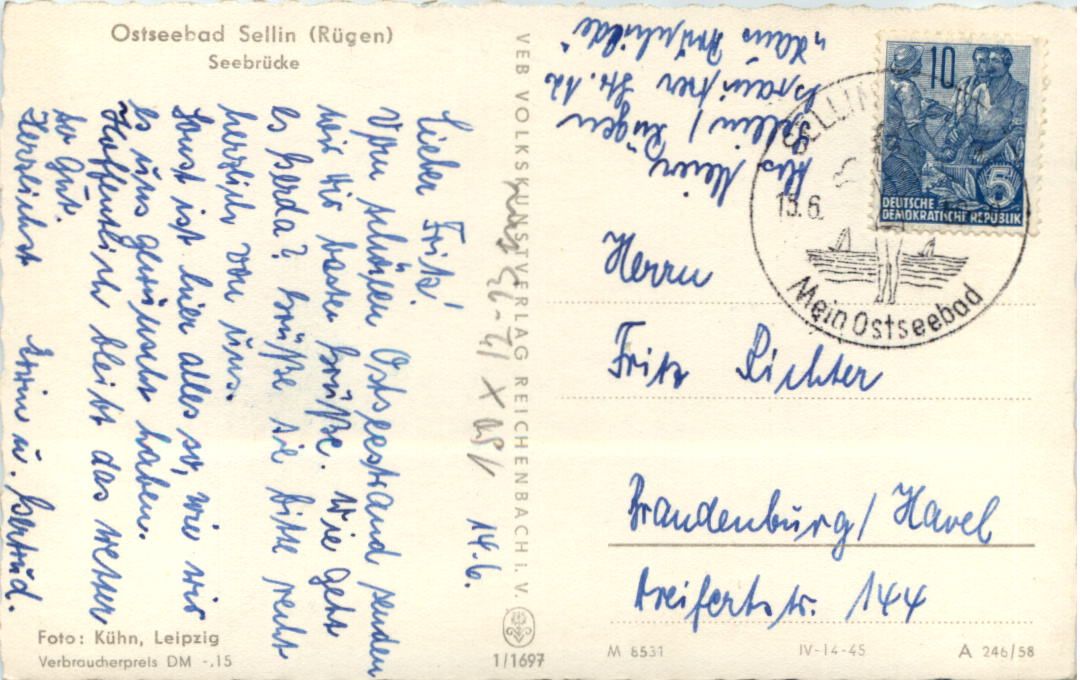 Ostseebad Sellin (Rügen)
Seebrücke
14.6.
Lieber Fritz!
Vom schönen Ostseestrand senden
wir dir besten Grüße. Wie geht
es Gerda? Grüße sie bitte recht
herzlich von uns.
Sonst ist hier alles so, wie wir
es uns gewünscht haben.
Hoffentlich bleibt das Wetter
so gut.
Herzlichst Erwin u. Gertrud.
Foto: Kühn, Leipzig
Verbraucherpreis DM -,15
VEB VOLKSKUNSTVERLAG REICHENBACH I. V.
1/1697
Abs. Meier
Sellin / Rügen
Str. 12
"Haus Brünhilde"
10
5
DEUTSCHE
DEMOKRATISCHE REPUBLIK
SELLIN
13.6.
Mein Ostseebad
Herrn
Fritz Richter
Brandenburg/Havel
Dreifertstr. 144
M 8531
IV-14-45
A 246/58